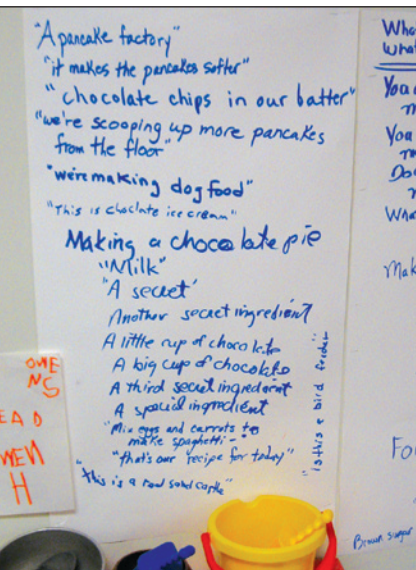 "A pancake factory"
"it makes the pancakes softer"
"chocolate chips in our batter"
"we're scooping up more pancakes
from the floor"
"we're making dog food"
"This is choclate ice cream"
Making a chocolate pie
"Milk"
"A secret"
Another secret ingredient
A little cup of chocolate
A big cup of chocolate
A third secret ingredient
A special ingredient
"Mix eggs and carrots to
make spaghetti-"
"that's our recipe for today"
"This is a sand castle"
"is this a bird feeder"
OWE
NS
EAD
WEN
H
Wha
what
You
You
Do
Wha
Mak
Fo
Brown sugar